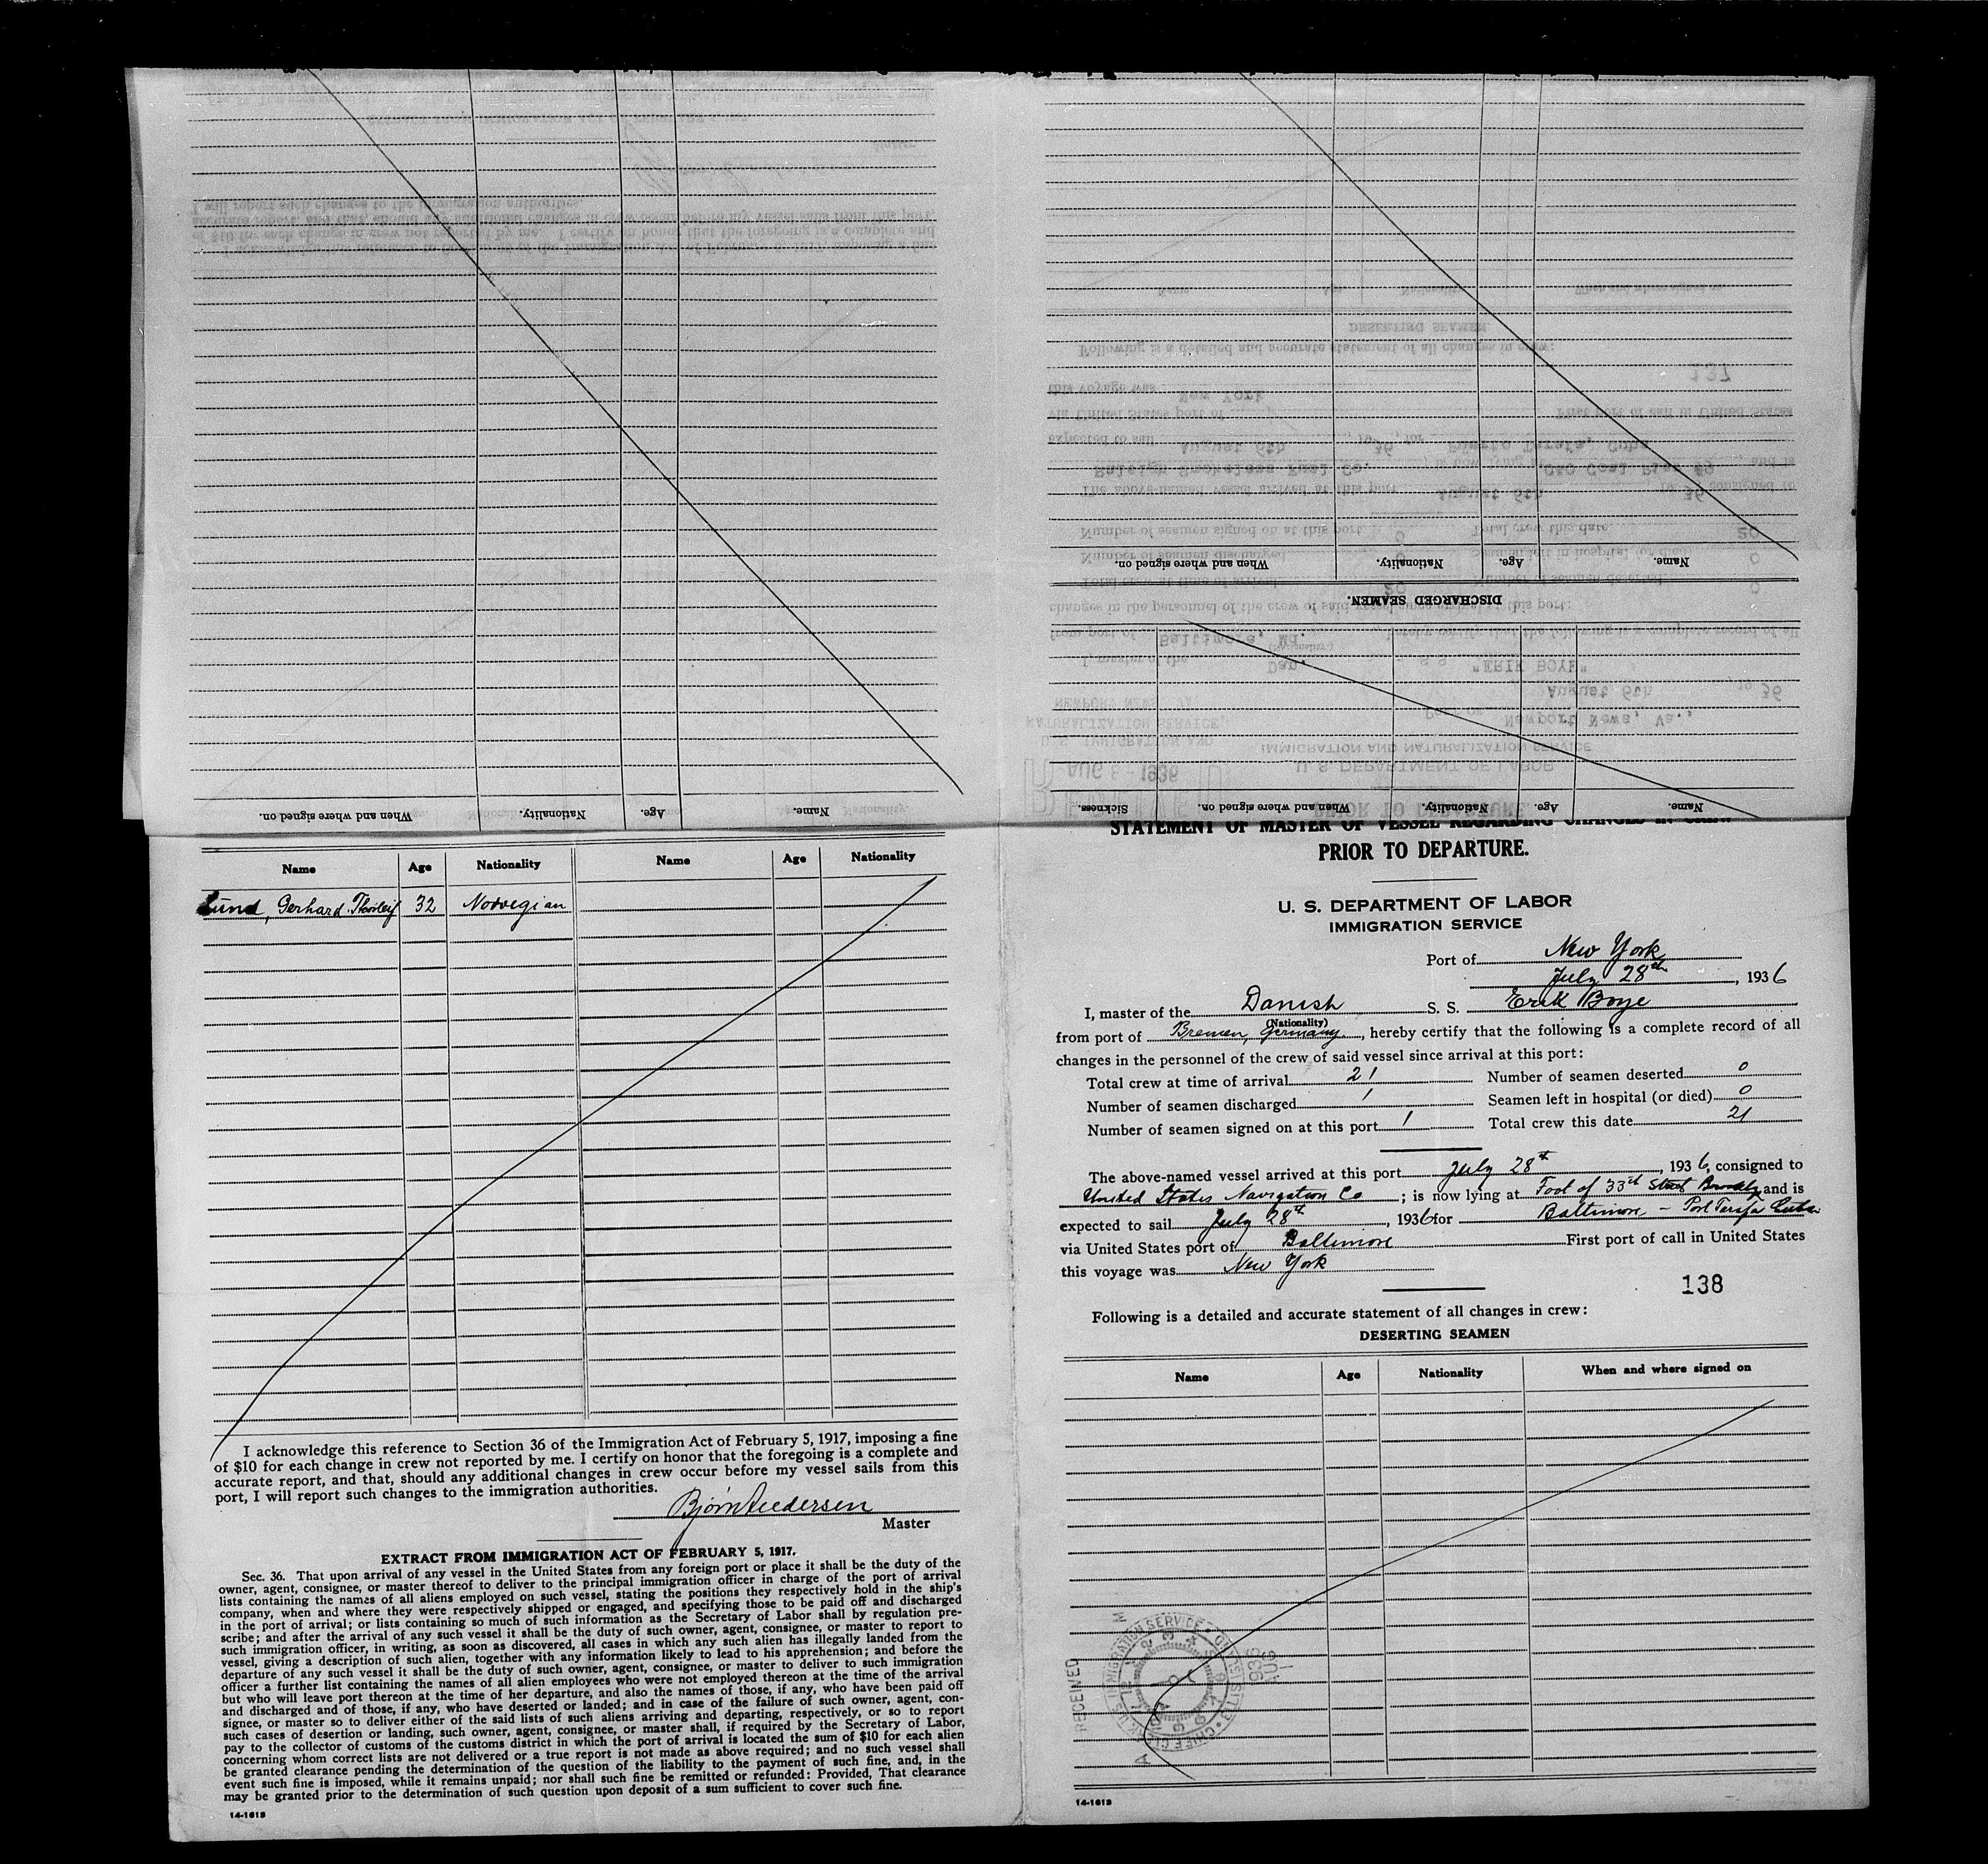 When and where signed on.
Nationality.
Age.
Name.
Name.
Age.
Nationality.
When and where signed on.
DISCHARGED SEAMEN.
Name.
Age.
Nationality.
When and where signed on.
Sickness.
Name
Age
Nationality
Name
Age
Nationality
Lund, Gerhard Thorleif 32 Norwegian
I acknowledge this reference to Section 36 of the Immigration Act of February 5, 1917, imposing a fine
of $10 for each change in crew not reported by me. I certify on honor that the foregoing is a complete and
accurate report, and that, should any additional changes in crew occur before my vessel sails from this
port, I will report such changes to the immigration authorities.
Master
EXTRACT FROM IMMIGRATION ACT OF FEBRUARY 5, 1917.
Sec. 36. That upon arrival of any vessel in the United States from any foreign port or place it shall be the duty of the
owner, agent, consignee, or master thereof to deliver to the principal immigration officer in charge of the port of arrival
lists containing the names of all aliens employed on such vessel, stating the positions they respectively hold in the ship's
company, when and where they were respectively shipped or engaged, and specifying those to be paid off and discharged
in the port of arrival; or lists containing so much of such information as the Secretary of Labor shall by regulation pre-
scribe; and after the arrival of any such vessel it shall be the duty of such owner, agent, consignee, or master to report to
such immigration officer, in writing, as soon as discovered, all cases in which any such alien has illegally landed from the
vessel, giving a description of such alien, together with any information likely to lead to his apprehension; and before the
departure of any such vessel it shall be the duty of such owner, agent, consignee, or master to deliver to such immigration
officer a further list containing the names of all alien employees who were not employed thereon at the time of the arrival
but who will leave port thereon at the time of her departure, and also the names of those, if any, who have been paid off
and discharged and of those, if any, who have deserted or landed; and in case of the failure of such owner, agent, con-
signee, or master so to deliver either of the said lists of such aliens arriving and departing, respectively, or so to report
such cases of desertion or landing, such owner, agent, consignee, or master shall, if required by the Secretary of Labor,
pay to the collector of customs of the customs district in which the port of arrival is located the sum of $10 for each alien
concerning whom correct lists are not delivered or a true report is not made as above required; and no such vessel shall
be granted clearance pending the determination of the question of the liability to the payment of such fine, and, in the
event such fine is imposed, while it remains unpaid; nor shall such fine be remitted or refunded: Provided, That clearance
may be granted prior to the determination of such question upon deposit of a sum sufficient to cover such fine.
14-1613
STATEMENT OF MASTER OF VESSEL REGARDING CHANGES IN CREW
PRIOR TO DEPARTURE.
U. S. DEPARTMENT OF LABOR
IMMIGRATION SERVICE
Port of New York
July 28th, 1936
I, master of the Danish S. S. Erik Boye
(Nationality)
from port of Bremen, Germany, hereby certify that the following is a complete record of all
changes in the personnel of the crew of said vessel since arrival at this port:
Total crew at time of arrival 21 Number of seamen deserted 0
Number of seamen discharged 1 Seamen left in hospital (or died) 0
Number of seamen signed on at this port 1 Total crew this date 21
The above-named vessel arrived at this port July 28th, 1936, consigned to
United States Navigation Co; is now lying at Foot of 33rd Street Brooklyn and is
expected to sail July 28th, 1936 for Baltimore - Port Tarafa Cuba
via United States port of Baltimore First port of call in United States
this voyage was New York
138
Following is a detailed and accurate statement of all changes in crew:
DESERTING SEAMEN
Name
Age
Nationality
When and where signed on
RECEIVED
14-1613